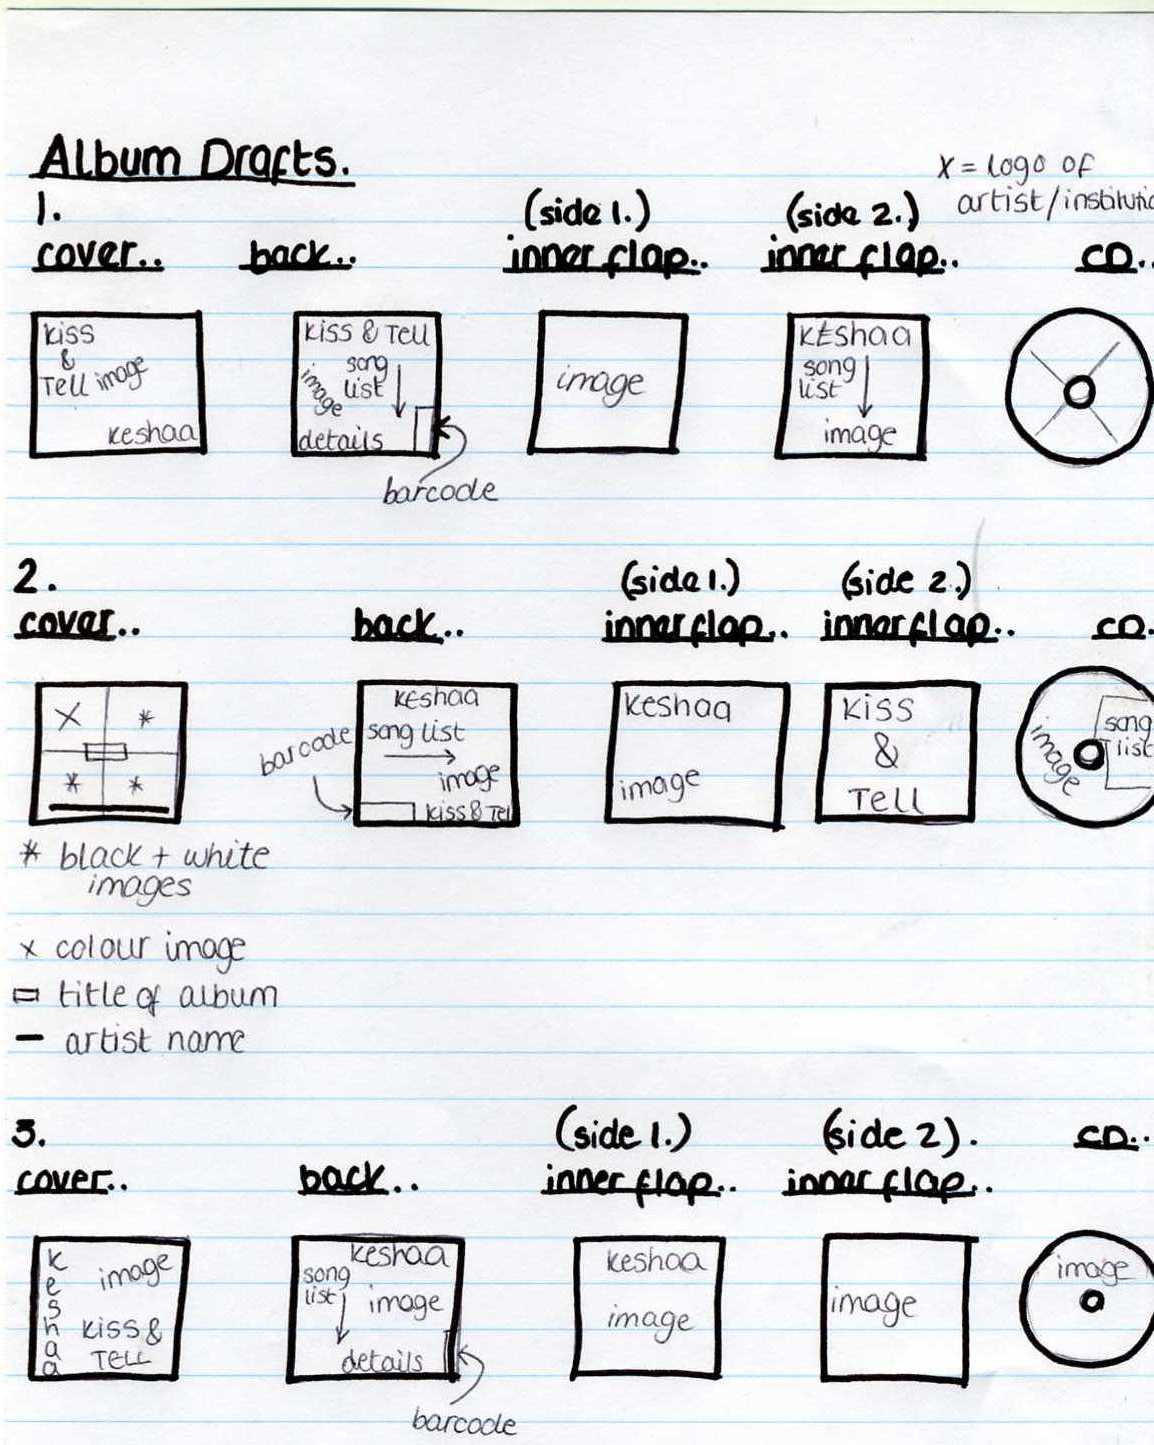 Album Drafts.
x = logo of
artist/institutio
1.
(side 1.)
(side 2.)
cover..
back...
inner flap..
inner flap..
CD..
Kiss
&
Tell image
keshaa
Kiss & Tell
song
list
image
details
barcode
image
kEshaa
song
list
image
2.
(side 1.)
(side 2.)
cover..
back..
inner flap..
inner flap..
CD.
X
*
*
*
barcode
kEshaa
song list
image
Kiss & Tel
keshaa
image
Kiss
&
Tell
image
song
list
* black + white
images
x colour image
title of album
artist name
3.
(side 1.)
(side 2).
CD..
cover..
back..
inner flap..
inner flap..
keshaa
image
Kiss &
Tell
keshaa
song
list
image
details
barcode
keshaa
image
image
image